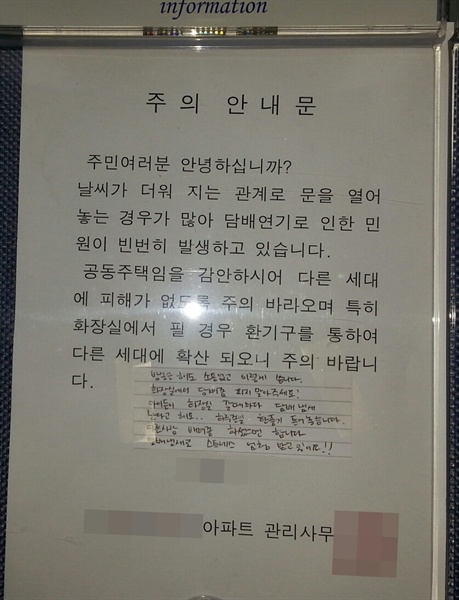 information
주 의 안 내 문
주민여러분 안녕하십니까?
날씨가 더워 지는 관계로 문을 열어
놓는 경우가 많아 담배연기로 인한 민
원이 빈번히 발생하고 있습니다.
공동주택임을 감안하시어 다른 세대
에 피해가 없도록 주의 바라오며 특히
화장실에서 필 경우 환기구를 통하여
다른 세대에 확산 되오니 주의 바랍니
다.
방송을 해도 소용없고 이렇게 씁니다.
화장실에서 담배좀 피지 말아주세요!
화장실 갈때마다 담배 냄새
해요..
배려좀 하셨으면 합니다
스트레스 받고 있어요!!
아파트 관리사무